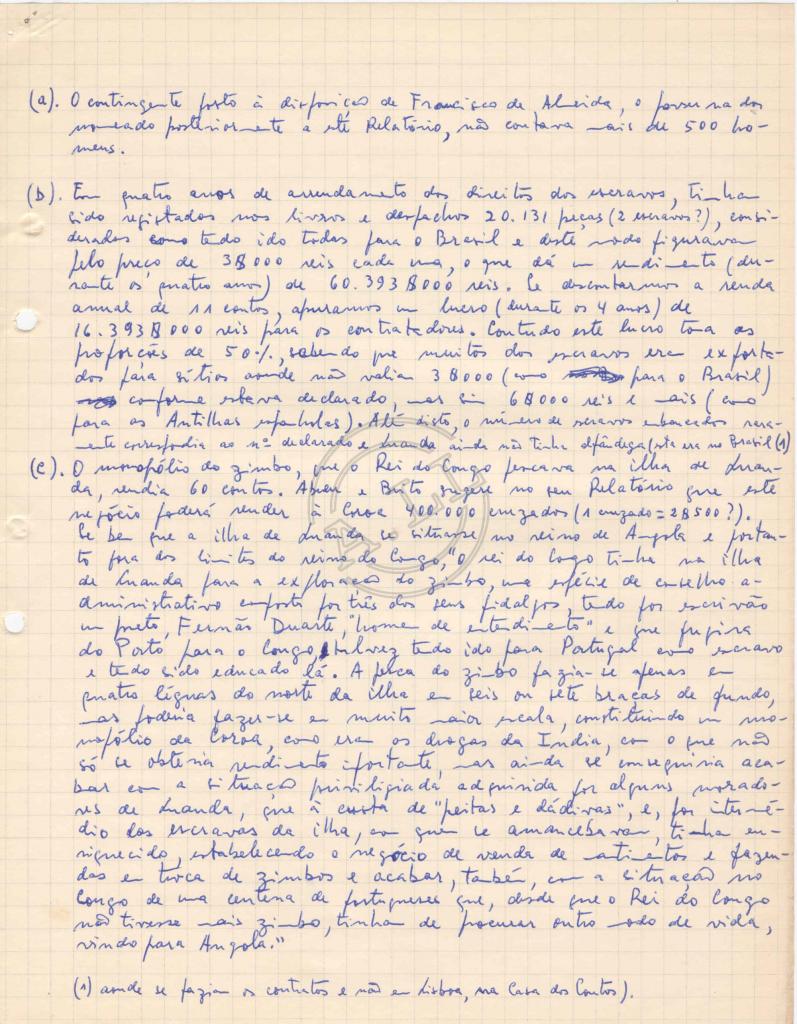 (a). O contingente posto à disposição de Francisco de Almeida, o governador
nomeado posteriormente a este Relatório, não contava mais de 500 ho-
mens.
(b). Em quatro anos de arrendamento dos direitos dos escravos, tinham
sido registados nos livros e despachos 20.131 peças (2 escravos?), consi-
derados como tendo ido todas para o Brasil e deste modo figuravam
pelo preço de 3$000 reis cada uma, o que dá um rendimento (du-
rante os quatro anos) de 60.393$000 reis. Se descontarmos a renda
anual de 11 contos, apuramos um lucro (durante os 4 anos) de
16.393$000 reis para os contratadores. Contudo este lucro toma as
proporções de 50%, sabendo que muitos dos escravos eram exporta-
dos para sítios aonde não valiam 3$000 (como para o Brasil)
conforme estava declarado, mas sim 6$000 reis e mais (como
para as Antilhas espanholas). Além disto, o número de escravos embarcados rara-
mente correspondia ao nº declarado e Luanda ainda não tinha alfândega (esta era no Brasil (1)
(c). O monopólio do zimbo, que o Rei do Congo pescava na ilha de Luan-
da, rendia 60 contos. Abreu e Brito sugere no seu Relatório que este
negócio poderá render à Coroa 400.000 cruzados (1 cruzado = 2$500?).
Se bem que a ilha de Luanda se situasse no reino de Angola e portan-
to fora dos limites do reino do Congo, "o rei do Congo tinha na ilha
de Luanda para a exploração do zimbo, uma espécie de conselho a-
dministrativo composto por três dos seus fidalgos, tendo por escrivão
um preto, Fernão Duarte, "homem de entendimento" e que fugira
do Porto para o Congo, talvez tendo ido para Portugal como escravo
e tendo sido educado lá. A pesca do zimbo fazia-se apenas em
quatro léguas do norte da ilha em seis ou sete braças de fundo,
mas poderia fazer-se em muito maior escala, constituindo um mo-
nopólio da Coroa, como eram as drogas da India, com o que não
só se obteria rendimento importante, mas ainda se conseguiria aca-
bar com a situação priviligiada adquirida por alguns morado-
res de Luanda, que à custa de "peitas e dádivas", e, por intermé-
dio das escravas da ilha, com quem se amancebavam, tinham en-
riquecido, estabelecendo o negócio de venda de mantimentos e fazen-
das em troca de zimbos e acabar, também, com a situação no
Congo de uma centena de portugueses que, desde que o Rei do Congo
não tivesse mais zimbo, tinham de procurar outro modo de vida,
vindo para Angola."
(1) aonde se faziam os contratos e não em Lisboa, na Casa dos Contos).